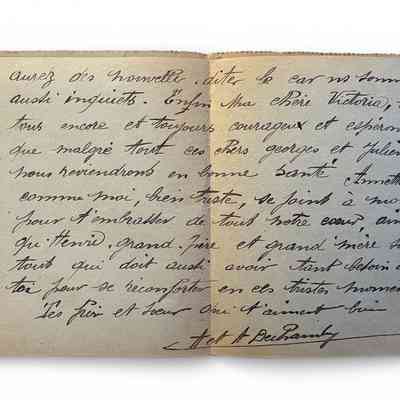 aurez des nouvelle diter le car ns somm
aussi inquiets. Enfin Ma chère Victoria,
tous encore et toujours courageux et espéron
que malgré tout ces chers georges et Julien
nous reviendrons en bonne santé Annette
comme moi, bien triste, se joint à mo
pour t'embrasser de tout notre cœur, ain
qu'Henri, grand-père et grand mère su
tout qui doit aussi avoir tant besoin d
toi pour se reconforter en ces tristes momen
Tes frère et sœur qui t'aiment bien
H et A